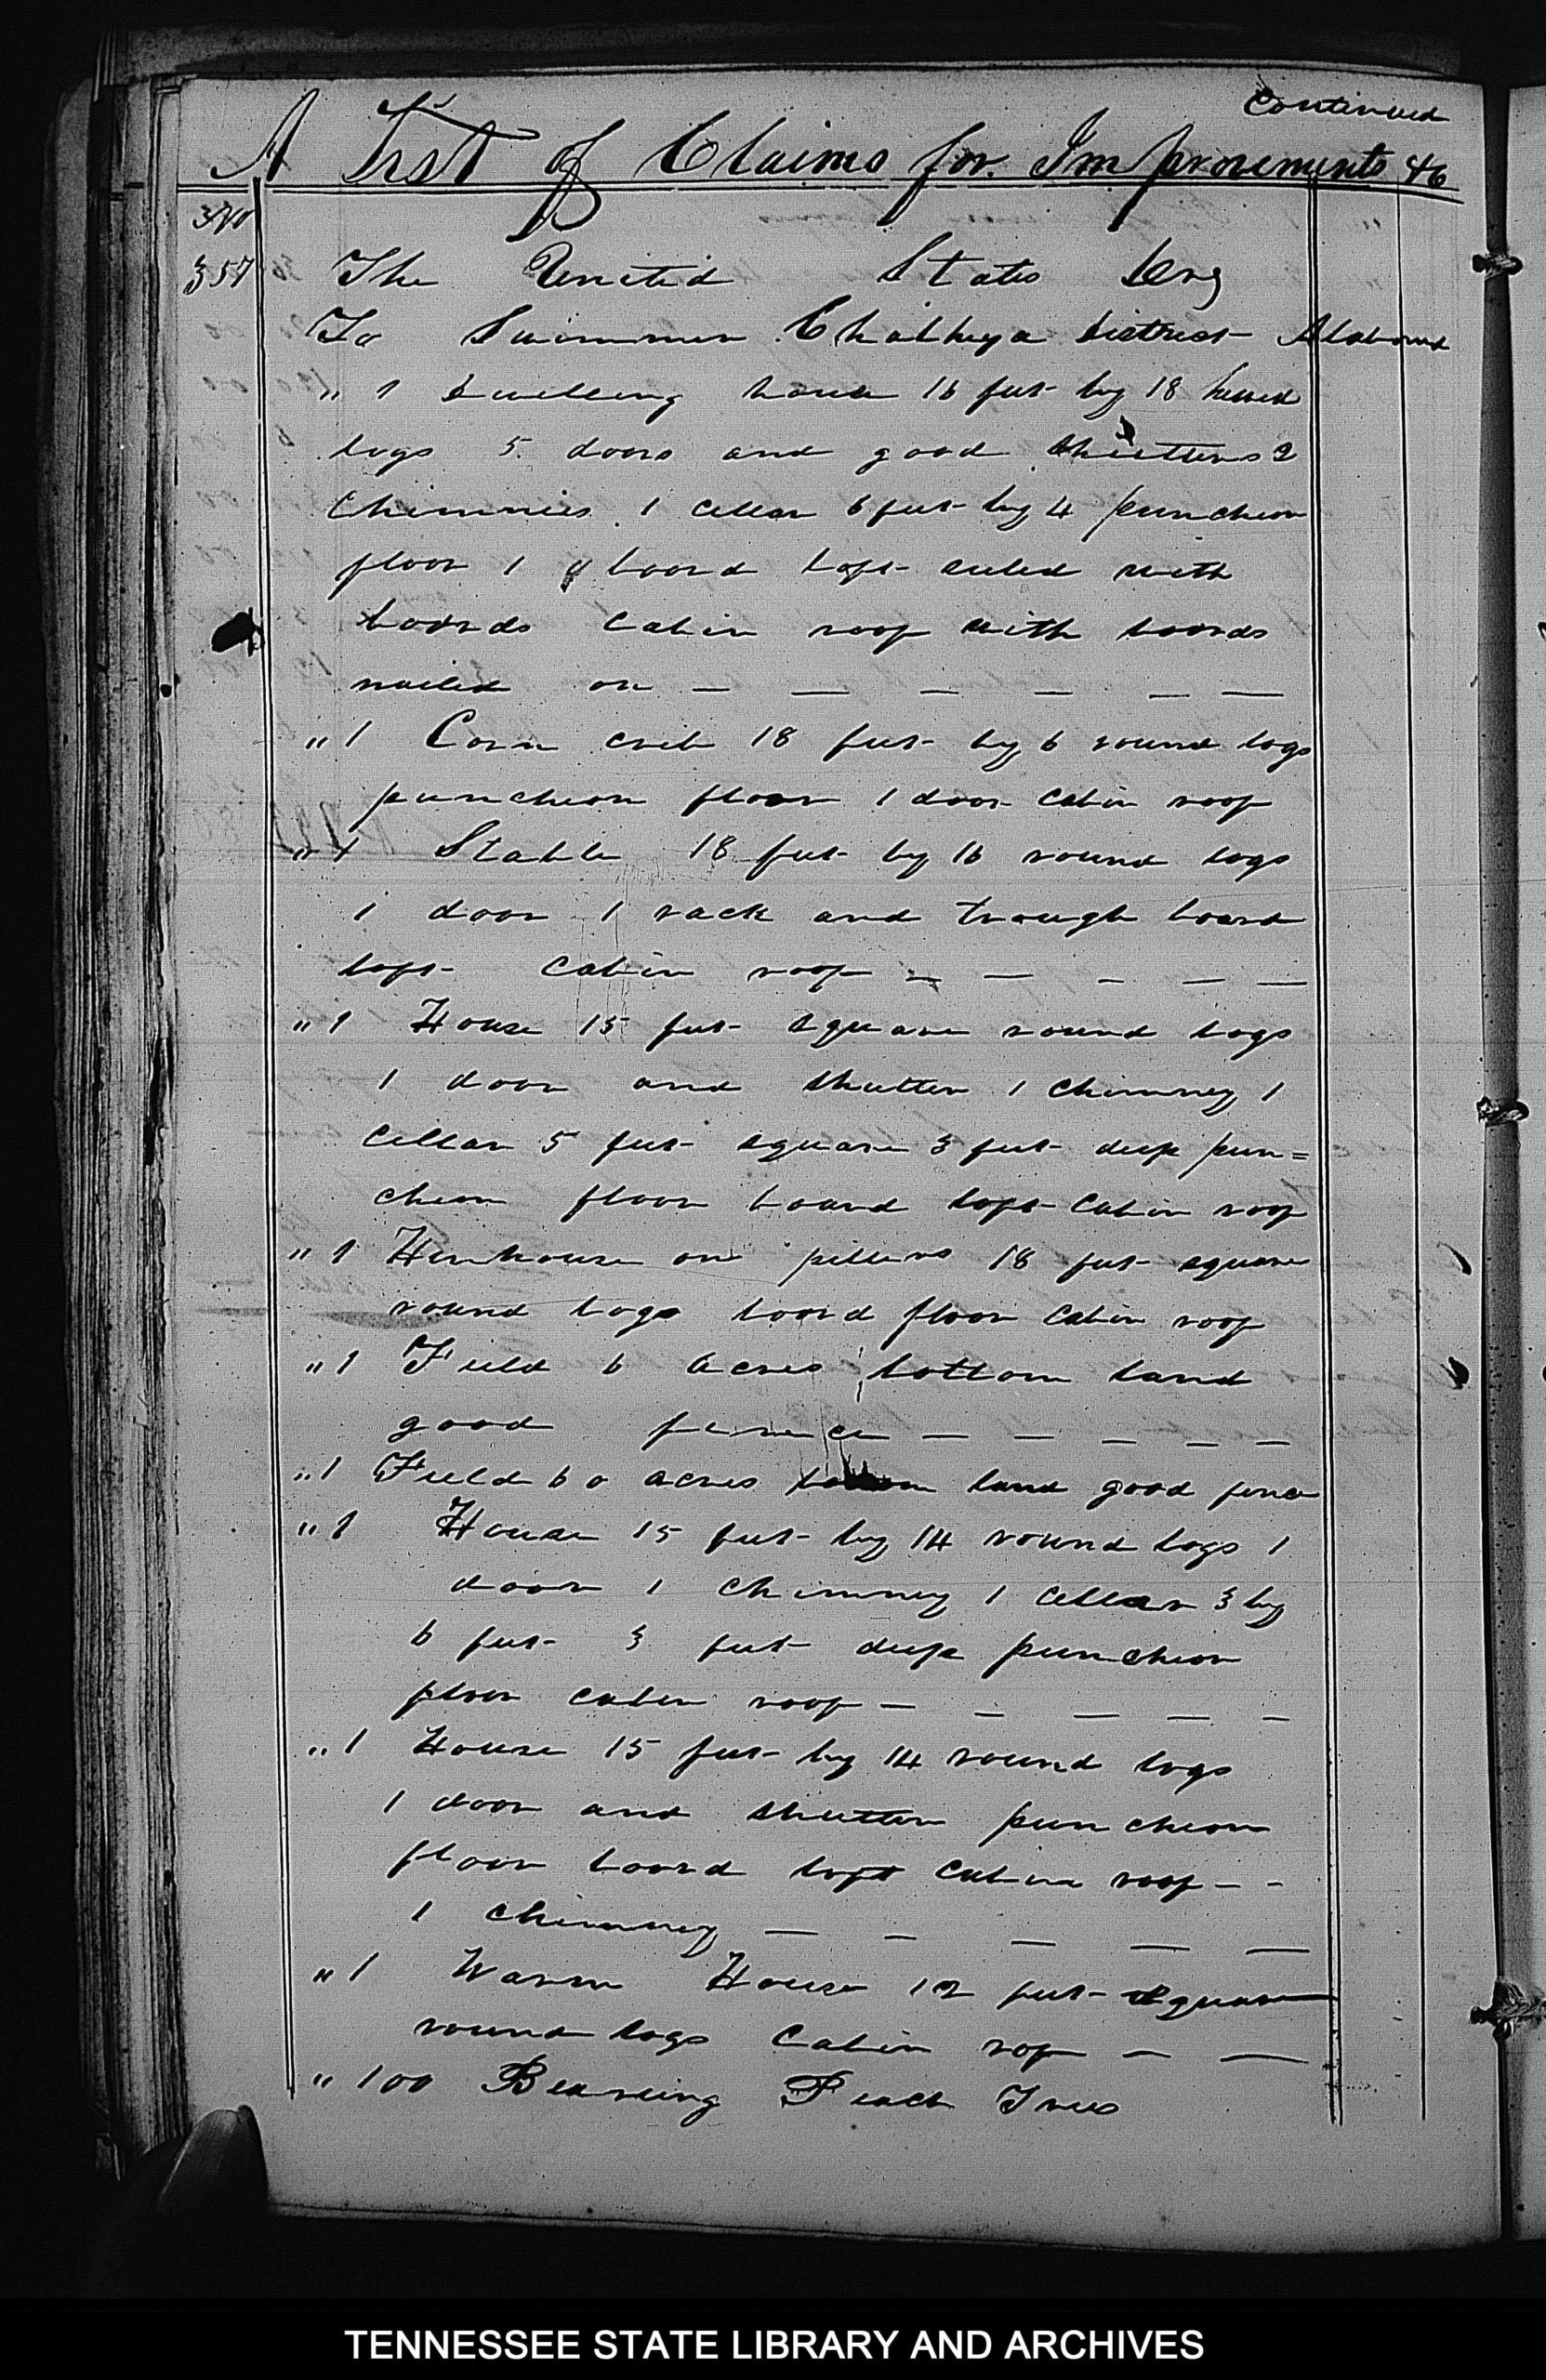 Continued
A List of Claims for Improvements 46
No
357 The United States Drs
To Swimmer District Alabama
" 1 Dwelling house 16 feet by 18 hewed
logs 5 doors and good Shutters 2
Chimnies 1 Cellar 6 feet by 4 puncheon
floor 1 board loft ceiled with
boards Cabin roof with boards
nailed on — — — — — —
" 1 Corn crib 18 feet by 6 round logs
puncheon floor 1 door Cabin roof
" 1 Stable 18 feet by 16 round logs
1 door 1 rack and trough board
loft Cabin roof — — — — —
" 1 House 15 feet Square round logs
1 door and Shutter 1 Chimney 1
Cellar 5 feet square 3 feet deep pun=
cheon floor board loft Cabin roof
" 1 Henhouse on pillers 18 feet square
round logs board floor Cabin roof
" 1 Field 6 Acres bottom land
good fence — — — — —
" 1 Field 60 acres bottom land good fence
" 1 House 15 feet by 14 round logs 1
door 1 Chimney 1 Cellar 3 by
6 feet 3 feet deep puncheon
floor cabin roof — — — — —
" 1 House 15 feet by 14 round logs
1 door and Shutter puncheon
floor board loft Cabin roof - -
1 Chimney — — — — —
" 1 Warm House 12 feet Square
round logs Cabin rof — —
" 100 Bearing Peach Trees
TENNESSEE STATE LIBRARY AND ARCHIVES